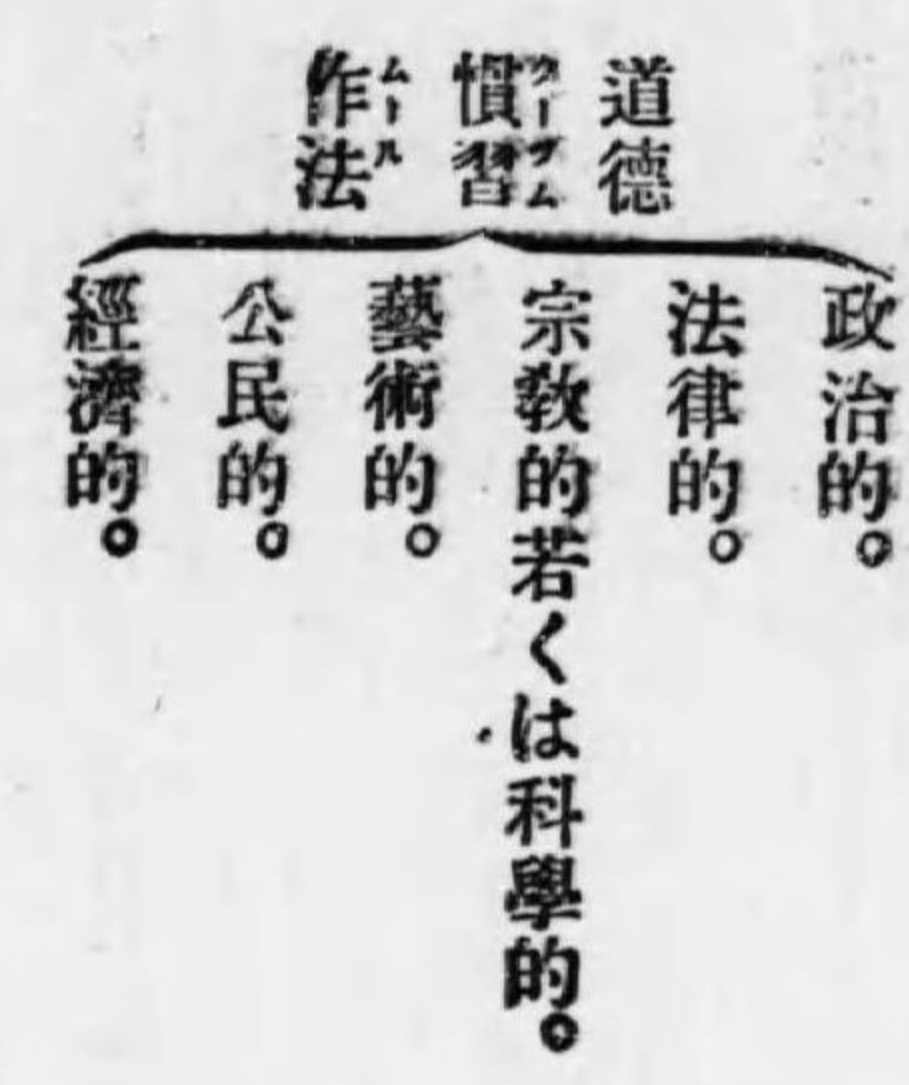 道德
慣習
作法
ムール
政治的。
法律的。
宗敎的若くは科學的。
藝術的。
公民的。
經濟的。